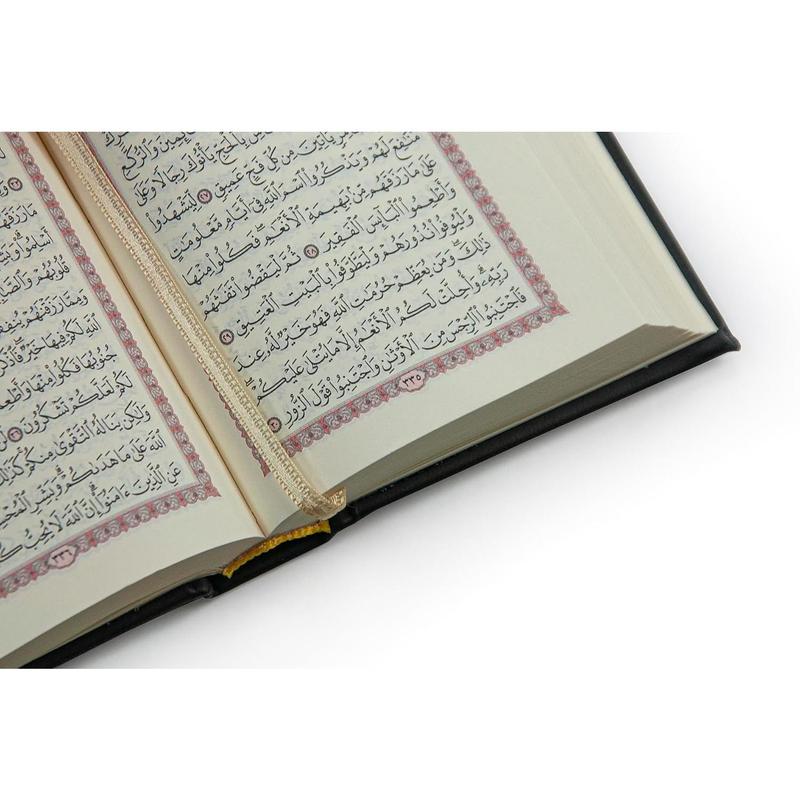 ئِمِينَ وَٱلرُّكَّعِ
بِٱلْحَجِّ يَأْتُوكَ رِجَالًا وَعَلَىٰ
يَأْتِينَ مِن كُلِّ فَجٍّ عَمِيقٍ ٢٧ لِّيَشْهَدُوا۟
مَنَـٰفِعَ لَهُمْ وَيَذْكُرُوا۟ ٱسْمَ ٱللَّهِ فِىٓ أَيَّامٍ مَّعْلُومَـٰتٍ
عَلَىٰ مَا رَزَقَهُم مِّنۢ بَهِيمَةِ ٱلْأَنْعَـٰمِ ۖ فَكُلُوا۟ مِنْهَا
وَأَطْعِمُوا۟ ٱلْبَآئِسَ ٱلْفَقِيرَ ٢٨ ثُمَّ لْيَقْضُوا۟ تَفَثَهُمْ
وَلْيُوفُوا۟ نُذُورَهُمْ وَلْيَطَّوَّفُوا۟ بِٱلْبَيْتِ ٱلْعَتِيقِ ٢٩
ذَٰلِكَ وَمَن يُعَظِّمْ حُرُمَـٰتِ ٱللَّهِ فَهُوَ خَيْرٌ لَّهُۥ عِندَ
رَبِّهِۦ ۗ وَأُحِلَّتْ لَكُمُ ٱلْأَنْعَـٰمُ إِلَّا مَا يُتْلَىٰ عَلَيْكُمْ ۖ
فَٱجْتَنِبُوا۟ ٱلرِّجْسَ مِنَ ٱلْأَوْثَـٰنِ وَٱجْتَنِبُوا۟ قَوْلَ ٱلزُّورِ ٣٠
٣٣٥
مَا رَزَقَهُم
أَسْلِمُوا۟ ۗ وَبَشِّرِ
قُلُوبُهُمْ وَٱلصَّـٰ
وَمِمَّا رَزَقْنَـٰهُمْ يُنفِقُ
ٱللَّهِ لَكُمْ فِيهَا خَيْرٌ ۖ فَٱذْكُ
جُنُوبُهَا فَكُلُوا۟ مِنْهَا وَأَطْعِ
لَكُمْ لَعَلَّكُمْ تَشْكُرُونَ ٣٦
وَلَـٰكِن يَنَالُهُ ٱلتَّقْوَىٰ مِنكُمْ ۚ كَذَٰلِكَ
ٱللَّهَ عَلَىٰ مَا هَدَىٰكُمْ ۗ وَبَشِّرِ ٱلْمُحْ
عَنِ ٱلَّذِينَ ءَامَنُوٓا۟ ۗ إِنَّ ٱللَّهَ لَا يُحِبُّ ك
٣٣٦